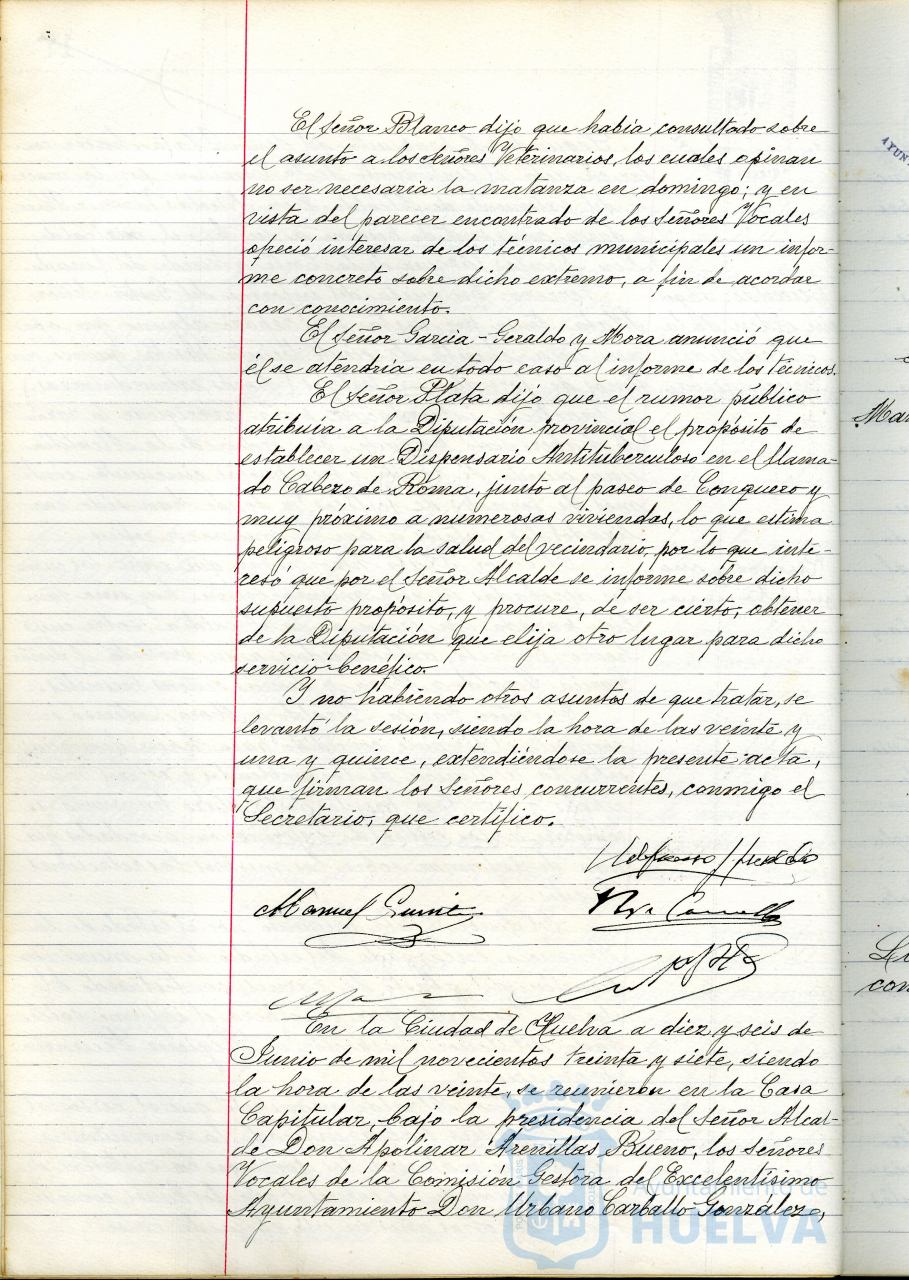 El Señor Blanco dijo que había consultado sobre
el asunto a los Señores Veterinarios, los cuales opinan
no ser necesaria la matanza en domingo; y en
vista del parecer encontrado de los Señores Vocales
ofreció interesar de los técnicos municipales un infor-
me concreto sobre dicho extremo, a fin de acordar
con conocimiento.
El Señor Garcia-Geraldo y Mora anunció que
él se atendría en todo caso al informe de los técnicos.
El Señor Plata dijo que el rumor público
atribuía a la Diputación provincial el propósito de
establecer un Dispensario Antituberculoso en el llama-
do Cabezo de Roma, junto al paseo de Conquero y
muy próximo a numerosas viviendas, lo que estima
peligroso para la salud del vecindario, por lo que inte-
resó que por el Señor Alcalde se informe sobre dicho
supuesto propósito, y procure, de ser cierto, obtener
de la Diputación que elija otro lugar para dicho
servicio benéfico.
Y no habiendo otros asuntos de que tratar, se
levantó la sesión, siendo la hora de las veinte y
una y quince, extendiéndose la presente acta,
que firman los Señores concurrentes, conmigo el
Secretario, que certifico.
Manuel
En la Ciudad de Huelva a diez y seis de
Junio de mil novecientos treinta y siete, siendo
la hora de las veinte, se reunieron en la Casa
Capitular, bajo la presidencia del Señor Alcal-
de Don Apolinar Arenillas Bueno, los Señores
Vocales de la Comisión Gestora del Excelentísimo
Ayuntamiento Don Urbano Carballo González,
Ayuntamiento de
HUELVA